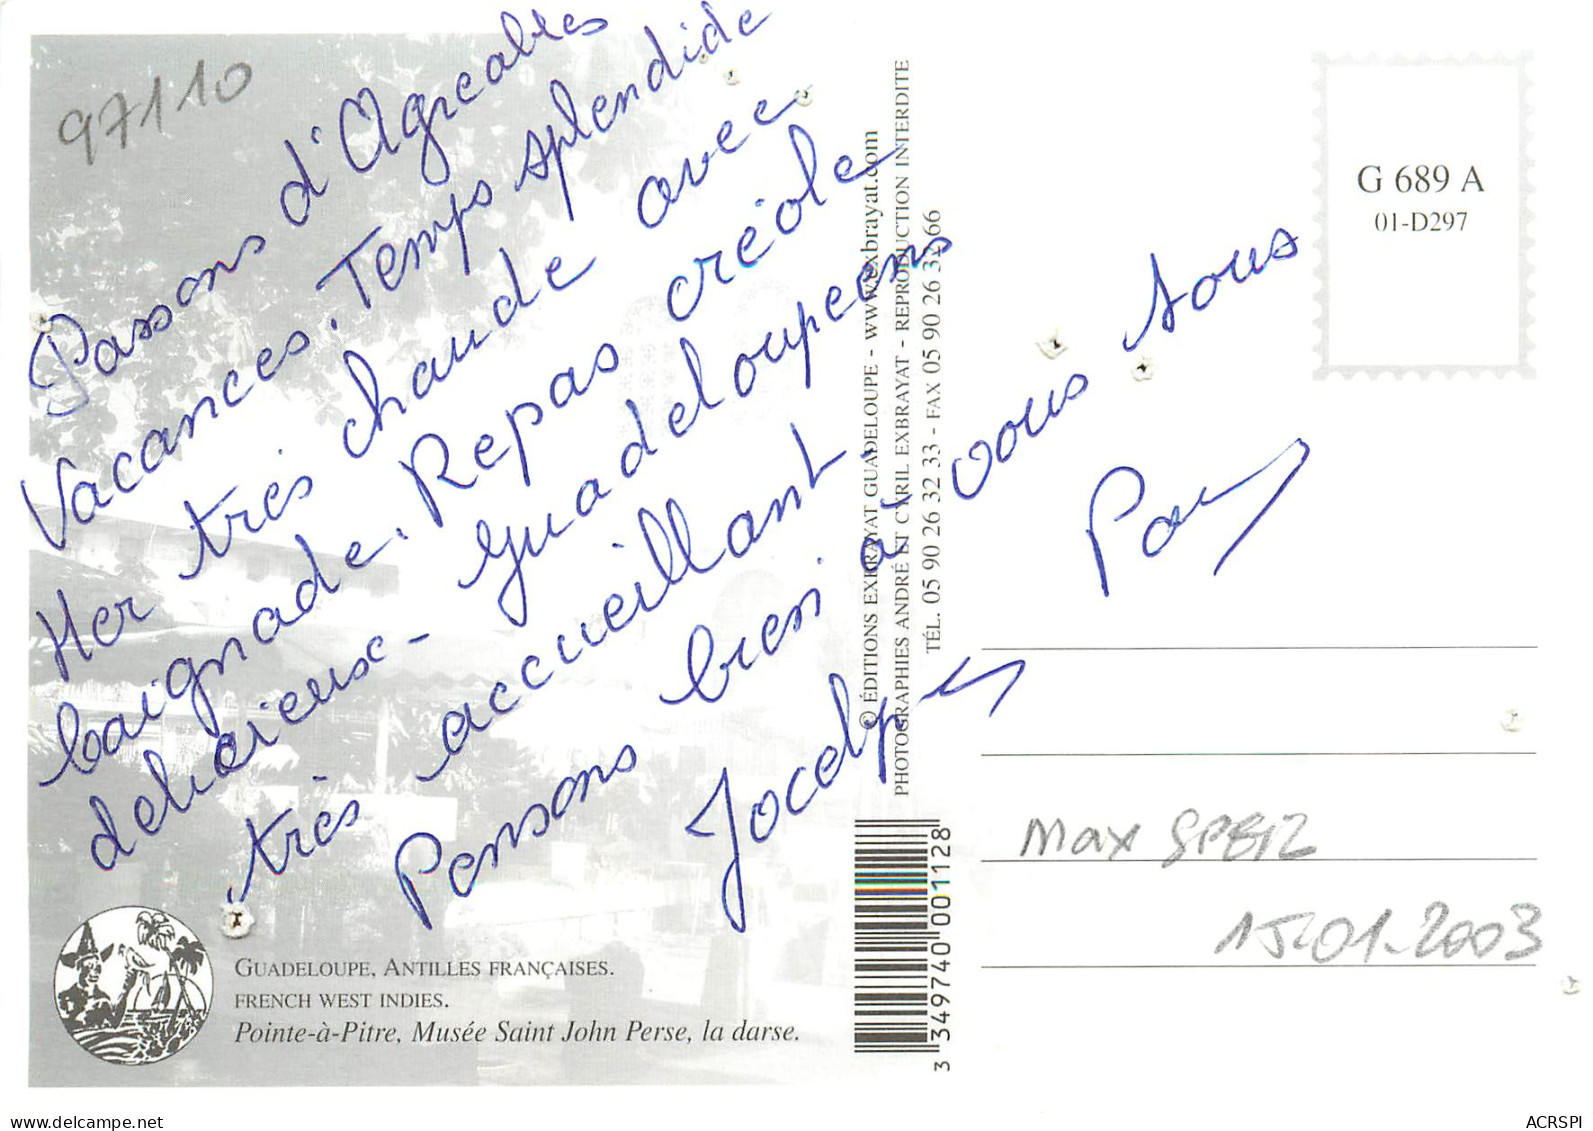 97110
Passons d'Agreables
Vacances. Temps splendide
Mer très chaude avec
baignade. Repas créole
delicieux - guadeloupeens
très accueillant.
Pensons bien à vous tous
Jocelyne
© ÉDITIONS EXBRAYAT GUADELOUPE - www.exbrayat.com
PHOTOGRAPHIES ANDRÉ ET CYRIL EXBRAYAT - REPRODUCTION INTERDITE
TÉL. 05 90 26 32 33 - FAX 05 90 26 32 66
G 689 A
01-D297
Max SPEIZ
15-01-2003
3 349740 001128
GUADELOUPE, ANTILLES FRANÇAISES.
FRENCH WEST INDIES.
Pointe-à-Pitre, Musée Saint John Perse, la darse.
https://www.delcampe.net
ACRSPI